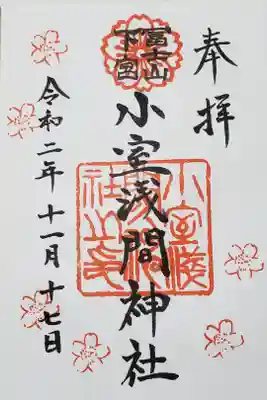 奉拝
冨士山
下宮
小室浅間神社
令和二年十一月十七日
小室浅間
神社之印